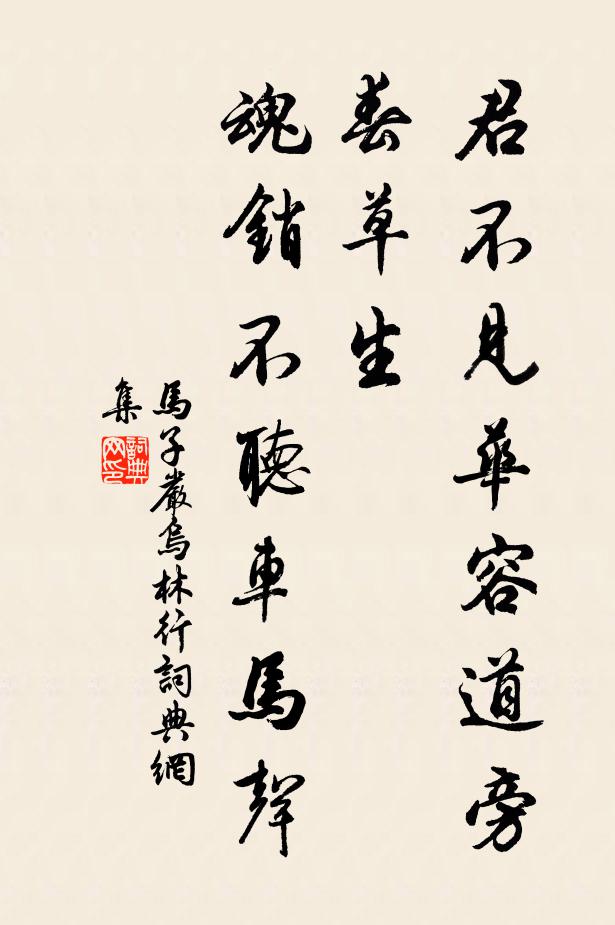 君不見華容道旁
春草生
魂銷不聽車馬聲
馬子嚴烏林行詞典網
集
詞典
网印